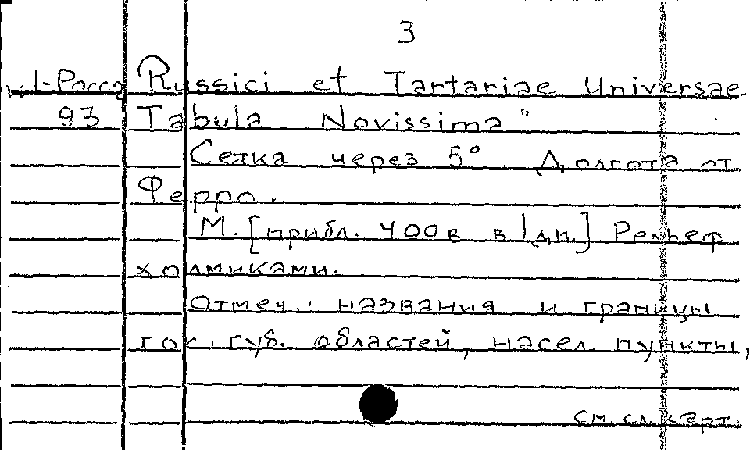 3
1-Росс Russici et Tartariae Universae
93 Tabula Novissima"
Сетка через 5° Долгота от
Ферро.
М. [прибл. 400в в 1дм.] Рельеф
холмиками.
Отмеч.: названия и границы
гос. губ. областей, насел пункты,
см. сл. карт.